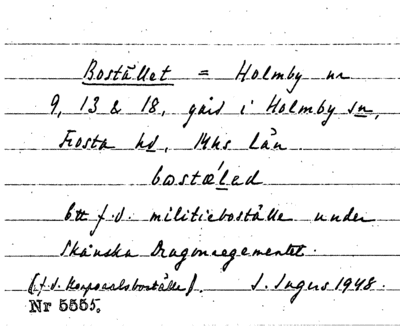 Bostället = Holmby nr
9, 13 & 18, gård i Holmby sn,
Frosta hd, Mhs län
bostæ'led
Ett f.d. militieboställe under
Skånska Dragonregementet.
(f.d. Korpralsboställe). I. Ingers 1948.
Nr 5555.